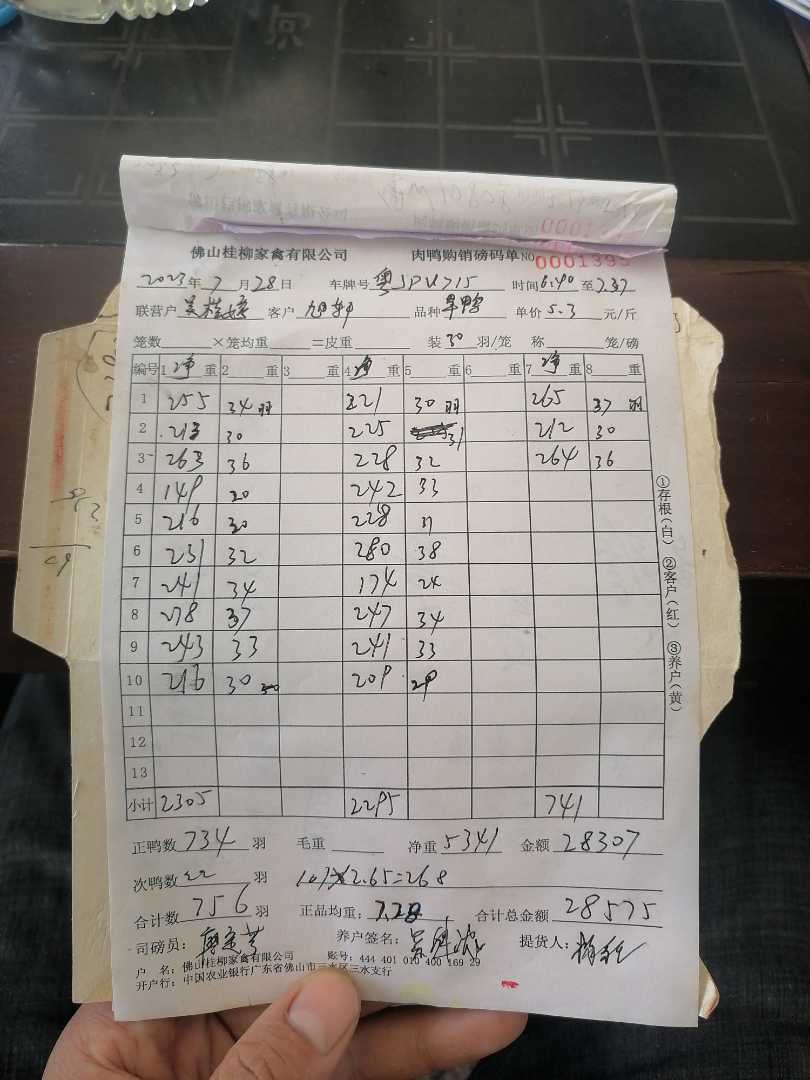 佛山桂柳家禽有限公司 肉鸭购销磅码单 NO 0001395
2023年7月28日 车牌号 粤JPU715 时间6.40至7.37
联营户 客户 旭轩 品种 旱鸭 单价5.3元/斤
笼数 ×笼均重 =皮重 装30羽/笼 称 笼/磅
编号 1净重 2重 3重 4净重 5重 6重 7净重 8重
1 255 34羽 221 30羽 265 37羽
2 213 30 225 31 212 30
3 263 36 228 32 264 36
4 149 20 242 33
5 216 30 228 31
6 231 32 280 38
7 241 34 174 24
8 278 37 247 34
9 243 33 241 33
10 216 30 209 29
11
12
13
小计 2305 2295 741
正鸭数734羽 毛重 净重5341 金额28307
次鸭数22羽 101×2.65=268
合计数756羽 正品均重:7.28 合计总金额28575
司磅员: 养户签名: 提货人:
户 名:佛山桂柳家禽有限公司 账号:444 401 010 400 169 29
开户行:中国农业银行广东省佛山市三水区三水支行
①存根(白) ②客户(红) ③养户(黄)